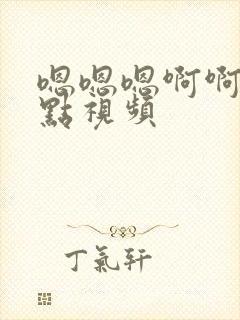 嗯嗯嗯啊啊
點視頻
丁氣軒